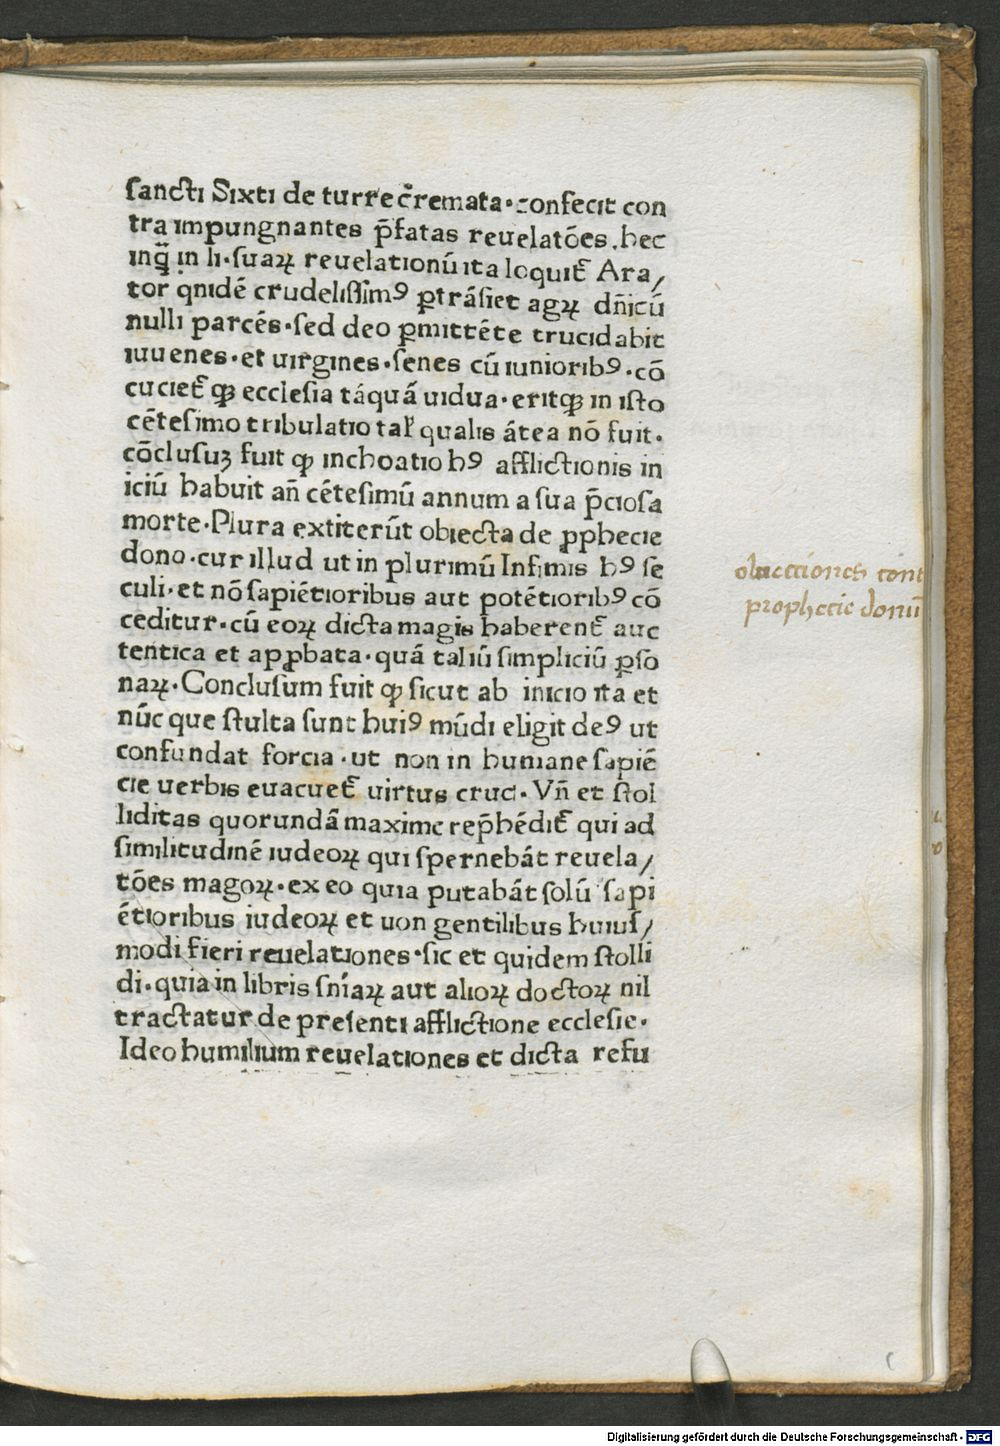 sancti Sixti de turre cr̃emata·confecit con
tra impungnantes p̄fatas reuelatōes.hec
inꝗ̄ in li·suaꝝ reuelationū ita loquit̃ Ara/
tor qnidē crudelissimꝰ ꝑtrāsiet agꝝ dn̄icū
nulli parcēs·sed deo ꝑmittēte trucidabit
iuuenes·et uirgines·senes cū iunioribꝰ·cō
cuciet̃ ꝙ ecclesia tāquā uidua·eritꝙ in isto
cētesimo tribulatio tal̕ qualis ātea nō fuit·
cōclusuꝫ fuit ꝙ inchoatio hꝰ afflictionis in
iciū habuit an̄ cētesimū annum a sua p̄ciosa
morte·Plura extiterūt obiecta de ꝓphecie
dono·cur illud ut in plurimū Infimis hꝰ se
culi·et nō sapiētioribus aut potētioribꝰ cō
ceditur·cū eoꝝ dicta magis haberent̃ auc
tentica et apꝓbata·quā taliū simpliciū ꝑso
naꝝ·Conclusum fuit ꝙ sicut ab inicio ita et
nūc que stulta sunt huiꝰ mūdi eligit deꝰ ut
confundat forcia·ut non in humane sapiē
cie uerbis euacuet̃ uirtus cruci·Vn̄ et stol
liditas quorundā maxime rep̄hēdit̃ qui ad
similitudinē iudeoꝝ qui spernebāt reuela/
tōes magoꝝ·ex eo quia putabāt solū sapi
ētioribus iudeoꝝ et uon gentilibus huius/
modi fieri reuelationes·sic et quidem stolli
di·quia in libris sn̄iaꝝ aut alioꝝ doctoꝝ nil
tractatur de presenti afflictione ecclesie·
Ideo humilium reuelationes et dicta refu
obiectiones cont
prophetie donū
Digitalisierung gefördert durch die Deutsche Forschungsgemeinschaft - DFG